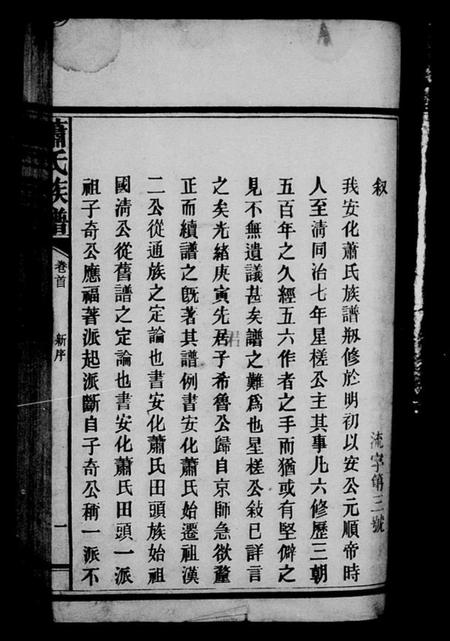 叙
我安化蕭氏族譜剏修於明初以安公元順帝時
人至清同治七年星槎公主其事凡六修歷三朝
五百年之久經五六作者之手而猶或有堅僻之
見不無遺議甚矣譜之難為也星槎公敍已詳言
之矣光緒庚寅先君子希魯公歸自京師急欲釐
正而續譜之旣著其譜例書安化蕭氏始遷祖漢
二公從通族之定論也書安化蕭氏田頭族始祖
國清公從舊譜之定論也書安化蕭氏田頭一派
祖子奇公應福著派起派斷自子奇公稱一派不
蕭氏族譜
卷首
新序
一
字第三號